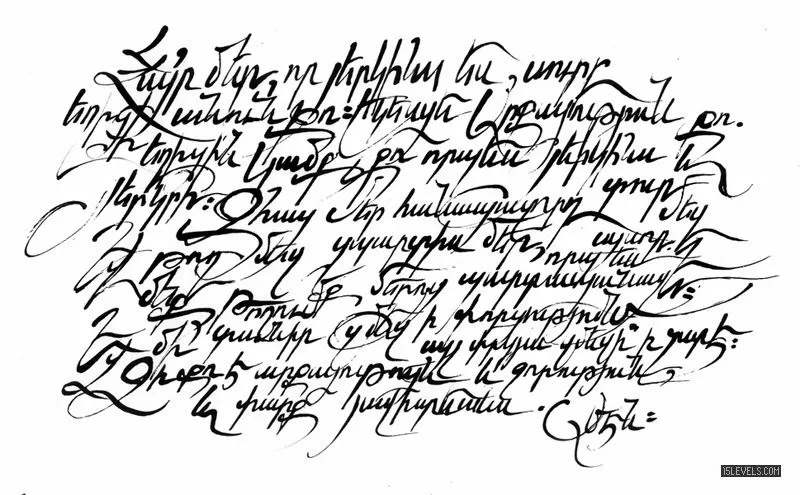 Հայր մեր, որ յերկինս ես, սուրբ
եղիցի անուն քո։ Եկեսցէ արքայութիւն քո.
Եղիցին կամք քո որպէս յերկինս և
յերկրի։ Զհաց մեր հանապազորդ տուր մեզ
և թող մեզ զպարտիս մեր, որպէս և
մեք թողումք մերոց պարտապանաց։
Եւ մի՛ տանիր զմեզ ի փորձութիւն
այլ փրկեա զմեզ ի չարէ։
Զի քո է արքայութիւն և զօրութիւն
և փառք յաւիտեանս. Ամէն։
15LEVELS.COM